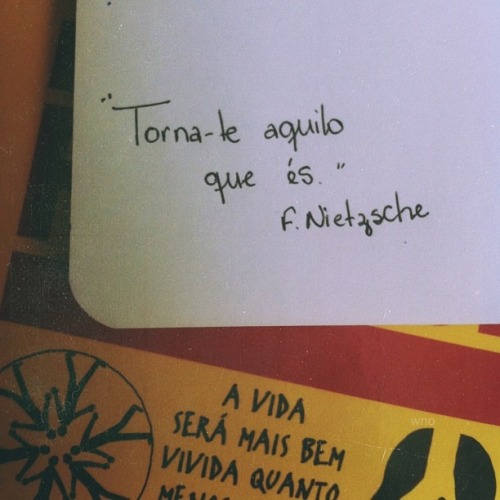 "Torna-te aquilo
que és."
F. Nietzsche
A VIDA
SERÁ MAIS BEM
VIVIDA QUANTO
wno